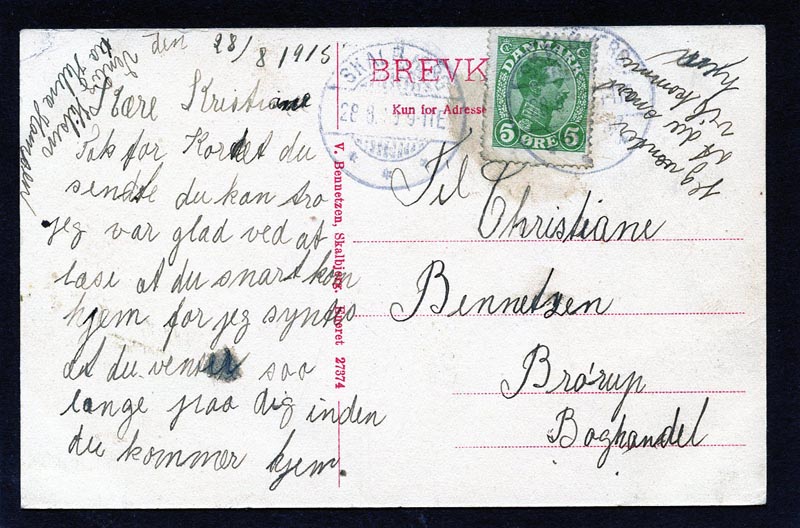 den 28/8 1915
Kære Kristiane
Tak for Kortet du
sendte du kan tro
jeg var glad ved at
læse at du snart kom
hjem for jeg syntes
at du venter saa
længe paa dig inden
du kommer hjem.
Hilsen
fra
Hansen
V. Bennetzen, Skalbjerg. Eneret 27374
BREVK
Kun for Adresse
SKALB
28.8.
DANMARK
5 ØRE 5
Jeg venter
at du snart
vil komme
hjem
Til
Christiane
Bennetzen
Brørup
Boghandel